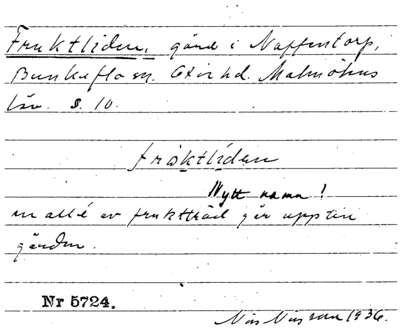 Fruktliden, gård i Naffentorp,
Bunkeflo sn. Oxie hd. Malmöhus
län. S. 10.
frɷktliden
Nytt namn!
en allé av fruktträd går upp till
gården.
Nr 5724.
Nils Nilsson 1936.